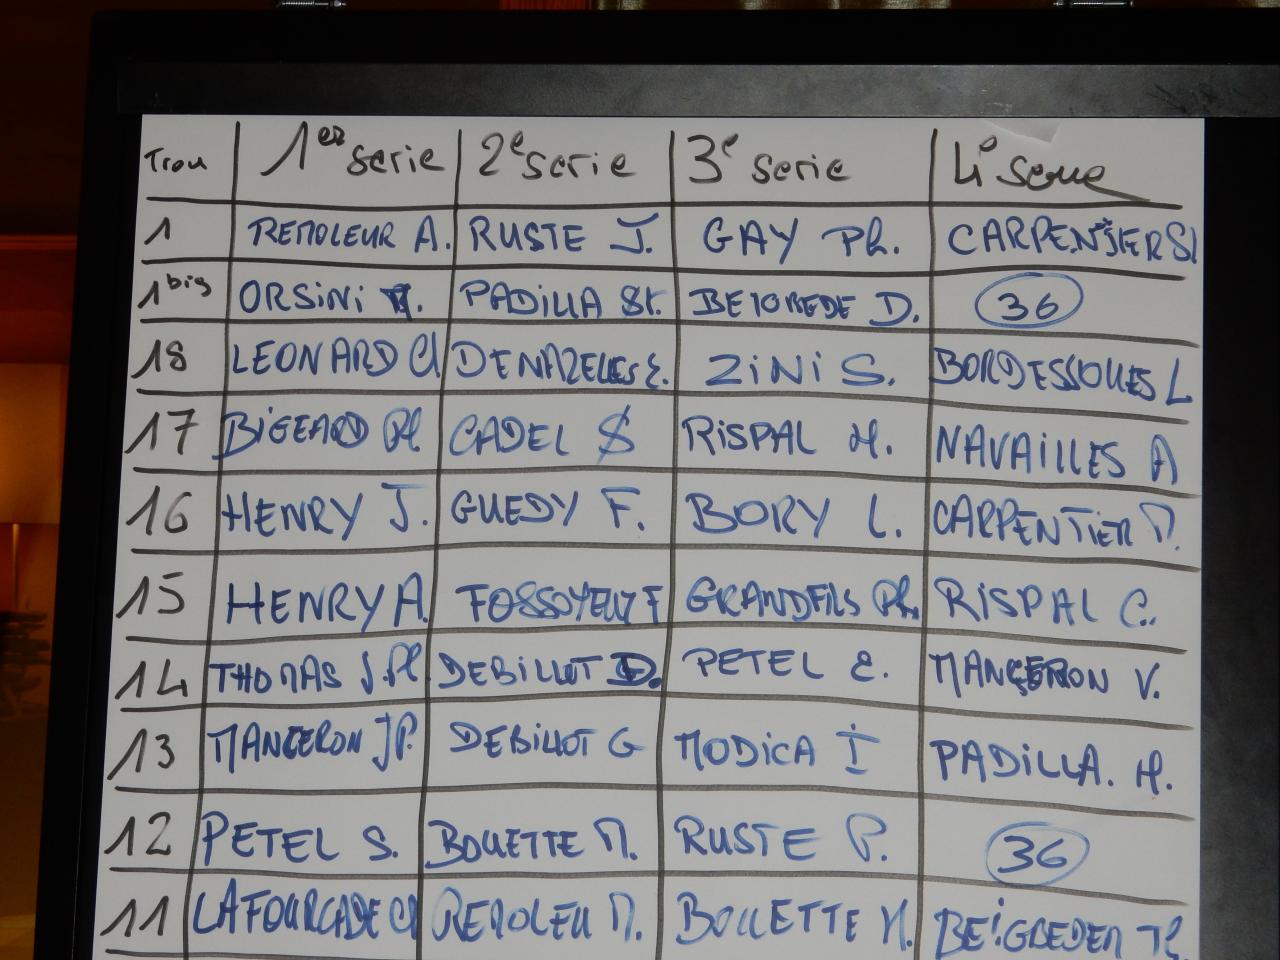 Trou 1er serie 2e serie 3e serie 4e serie
1 REMOLEUR A. RUSTE J. GAY Ph. CARPENTIER
1bis ORSINI PADILLA St. BETOREDE D. 36
18 LEONARD Cl DENAZELLES E. ZINI S. BORDESSOULES L
17 BIGEARD Ph CADEL S RISPAL M. NAVAILLES A
16 HENRY J. GUEDY F. BORY L. CARPENTIER M.
15 HENRY A. FOSSOYEUX F GRANDFILS Ph. RISPAL C.
14 THOMAS J.Ph. DEBILLOT D. PETEL E. MANGERON V.
13 MANGERON JP. DEBILLOT G MODICA I PADILLA. M.
12 PETEL S. BOUETTE M. RUSTE P. 36
11 LAFOURCADE Cl REMOLEU M. BOUETTE M. BEIGBEDER Th.